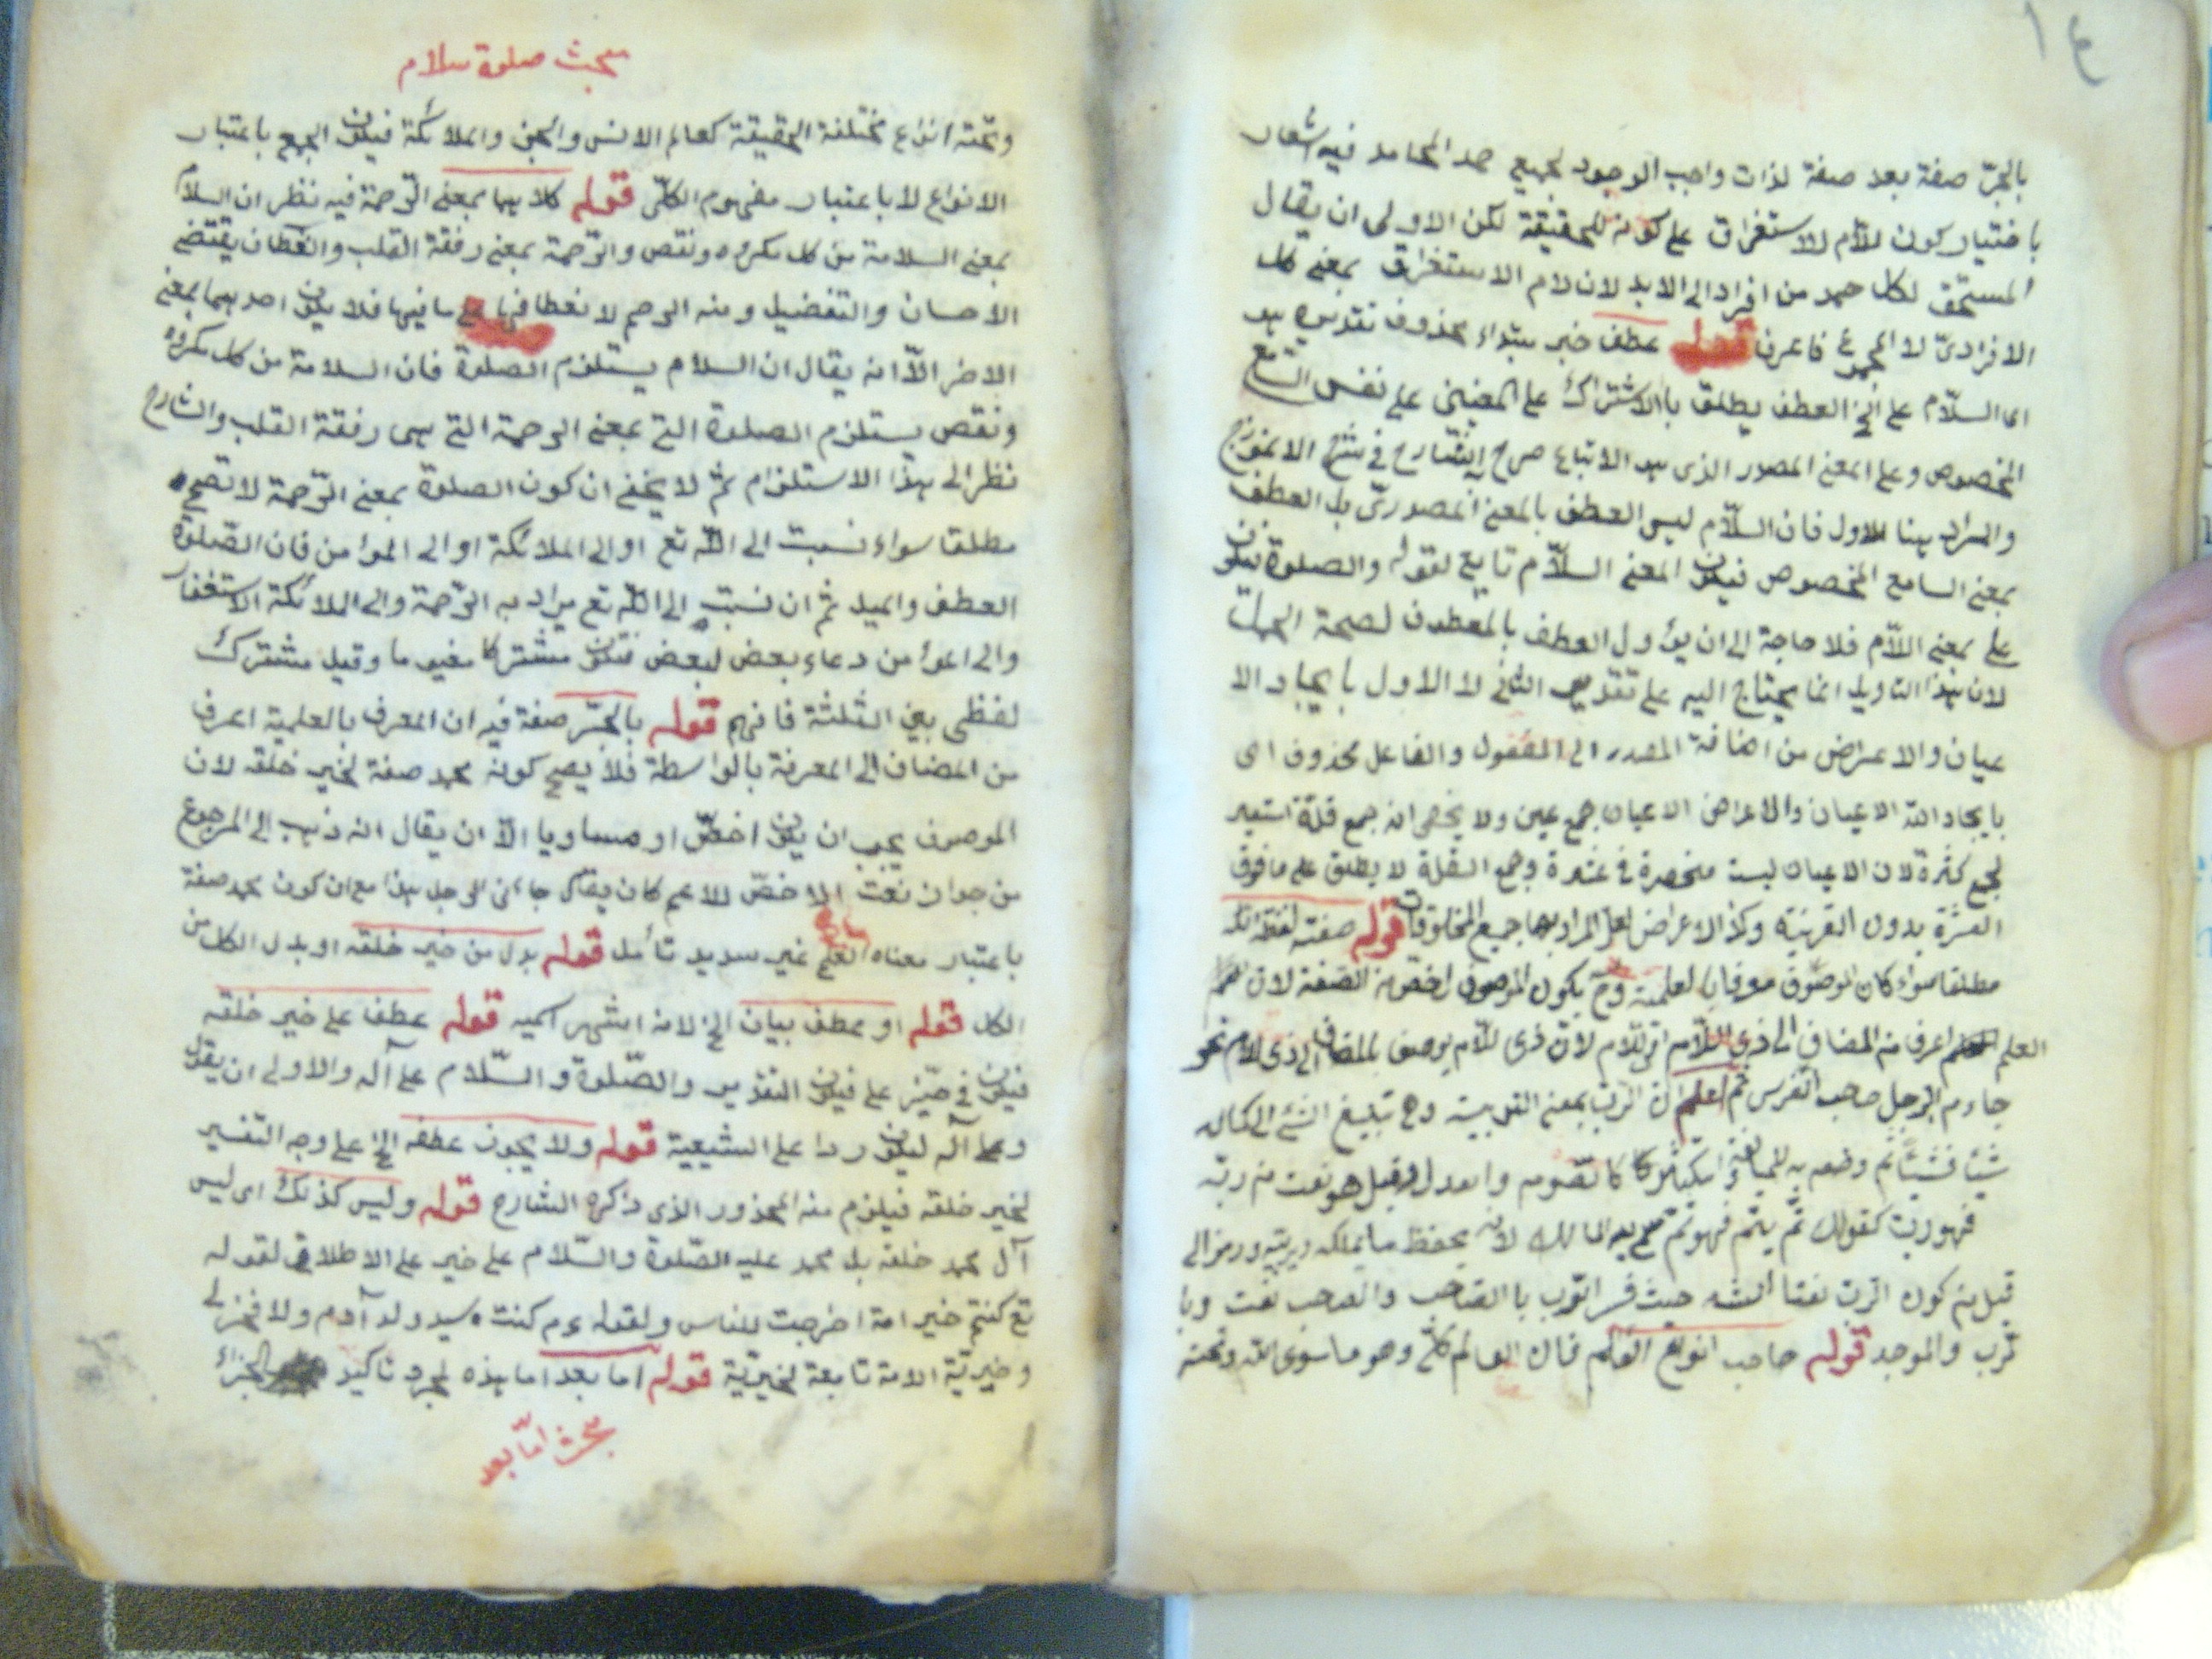 بالجرّ صفة بعد صفة لذات واجب الوجود لجميع حمد المحامد فيه اشعار
باختيار كون اللام للاستغراق على كونه للحقيقة لكن الاولى ان يقال
المستحق لكل حمد من افراد الى الابد لان لام الاستغراق بمعنى كل
الافرادىّ لا المجموعى فاعرف قوله عطف خبر مبتداء محذوف تقديره هو
اى السلّام على الخ العطف يطلق بالاشتراك على المعنيين على نفس التابع
المخصوص وعلى المعنى المصدر الذى هو الاتباع صرح الشارح فى شرح الانموزج
والمراد هنا الاول فان السلّام ليس العطف بالمعنى المصدرىّ بل العطف
بمعنى السامع المخصوص فيكون المعنى السلّام تابع لقوله والصلوة فيكون
على بمعنى اللام فلا حاجة الى ان يؤول العطف بالمعطوف لصحة الحمل
لان هذا التاويل انما يحتاج اليه على تقدير الثانى لا الاول بايجاد الا
عيان والاعراض من اضافة المصدر الى المفعول والفاعل محذوف اى
بايجاد الله الاعيان والاعراض الاعيان جمع عين ولا يخفى انه جمع قلة استعير
لجمع كثرة لان الاعيان ليست منحصرة فى عشرة وجمع القلة لا يطلق على ما فوق
العشرة بدون القرينة وكذا الاعراض لعل المراد بهما جميع المخلوقات قوله صفته لفظة الله
مطلقا سواء كان الموصوف معرفا بالعلمية وح يكون الموصوف اخص من الصفة لان
العلم اعرف من المضاف الى ذى اللام او باللام لان ذى اللام يوصف بالمضاف الى ذى اللام نحو
جاءم الرجل صاحب الفرس ثم اعلم ان الرب بمعنى التربية وهى تبليغ الشئ الى كماله
شيئا فشيئا ثم وصف به للمبالغة كالصوم والعدل وقيل هو نعت من ربّه
فهو ربّ كقولك نمّ ينمّ فهو نمّ سمى به المالك لانه يحفظ ما يملكه ويربيه ورمز الى
قبل من كون الرب نعتا الشه حيث فسر الرب بالصاحب والصاحب نعت وبا
لرب والموجد قوله صاحب انواع العالم فان العالم كلى وهو ما سوى الله وتحته
مبحث صلوة سلام
وتحته انواع مختلفة الحقيقة كعالم الانس والجن والملائكة فيكون الجمع باعتبار
الانواع لا باعتبار مفهوم الكلّى قوله كلاهما بمعنى الرّحمة فيه نظر ان السلام
بمعنى السلامة من كل مكروه ونقص والرّحمة بمعنى رفقة القلب وانعطاف يقتضى
الاحسان والتفضيل ومنه الرحم لانعطافها على ما فيها فلا يكون احدهما بمعنى
الاخر الّا انه يقال ان السلام يستلزم الصلوة فان السلامة من كل مكروه
ونقص يستلزم الصلوة التى بمعنى الرحمة التى هى رفقة القلب والشارح
نظر الى هذا الاستلزام ثمّ لا يخفى ان كون الصلوة بمعنى الرّحمة لا تصح
مطلقا سواء نسبت الى اللّه تع او الى الملائكة او الى المؤامن فان الصّلوة
العطف والميل ثم ان نسبت الى اللّه تع يراد به الرّحمة والى الملائكة الاستغفار
والى المؤامن دعاء بعض لبعض فتكون مشتركا مفهوما وقيل مشترك
لفظى بين الثلثة فافهم قوله بالجرّ صفة فيه ان المعرف بالعلمية اعرف
من المضاف الى المعرفة بالواسطة فلا يصح كونه محمد صفة لخير خلقه لان
الموصوف يجب ان يكون اخصّ او مساويا الّا ان يقال انه ذهب الى المرجوع
من جواز نعت الاخصّ للاعم كان يقال جائنى الرجل هذا مع ان كون محمد صفة
باعتبار معناه العلمى غير سديد تأمل قوله بدل من خير خلقه او بدل الكل من
الكل قوله او عطف بيان الخ لانه اشهر اسميه قوله عطف على خير خلقه
فيكون فى حيّز على فيكون التقدير والصّلوة والسّلام على آله والاولى ان يقول
وعلى آله ليكون ردا على الشيعية قوله ولا يجوز عطفه الخ على وجه التفسير
لخير خلقه فيلزم منه المحذور الذى ذكره الشارح قوله وليس كذلك اى ليس
آل محمد خلقه بل محمد عليه الصّلوة والسّلام على خير على الاطلاق لقوله
تع كنتم خير امة اخرجت للناس ولقوله عم كنت سيد ولد آدم ولا فخر لى
وخيريّة الامة تابعة لخيريّة قوله اما بعد اما هذه لمجرد تاكيد الجزاء
مبحث امّا بعد